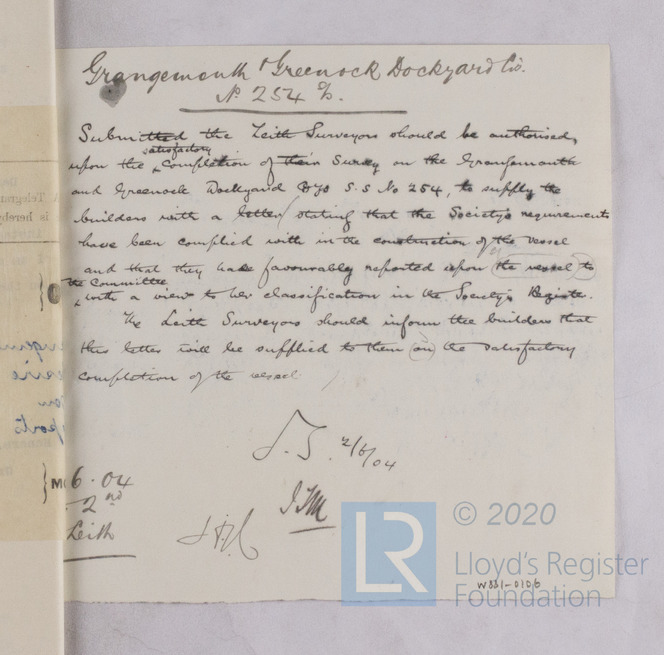 Grangemouth & Greenock Dockyard Co.
No 254 %.
Submitted the Leith Surveyors should be authorised,
satisfactory
upon the completion of their Survey on the Grangemouth
and Greenock Dockyard Coys S.S No 254, to supply the
builders with a letter stating that the Society's requirements
have been complied with in the construction of the vessel
and that they have favourably reported upon the vessel to
the Committee
with a view to her classification in the Society's Register.
The Leith Surveyors should inform the builders that
this letter will be supplied to them on the satisfactory
completion of the vessel
2/6/04
6.04
2nd
Leith
LR
© 2020
Lloyd's Register
Foundation
W881-0106
A Telegram
is hereby